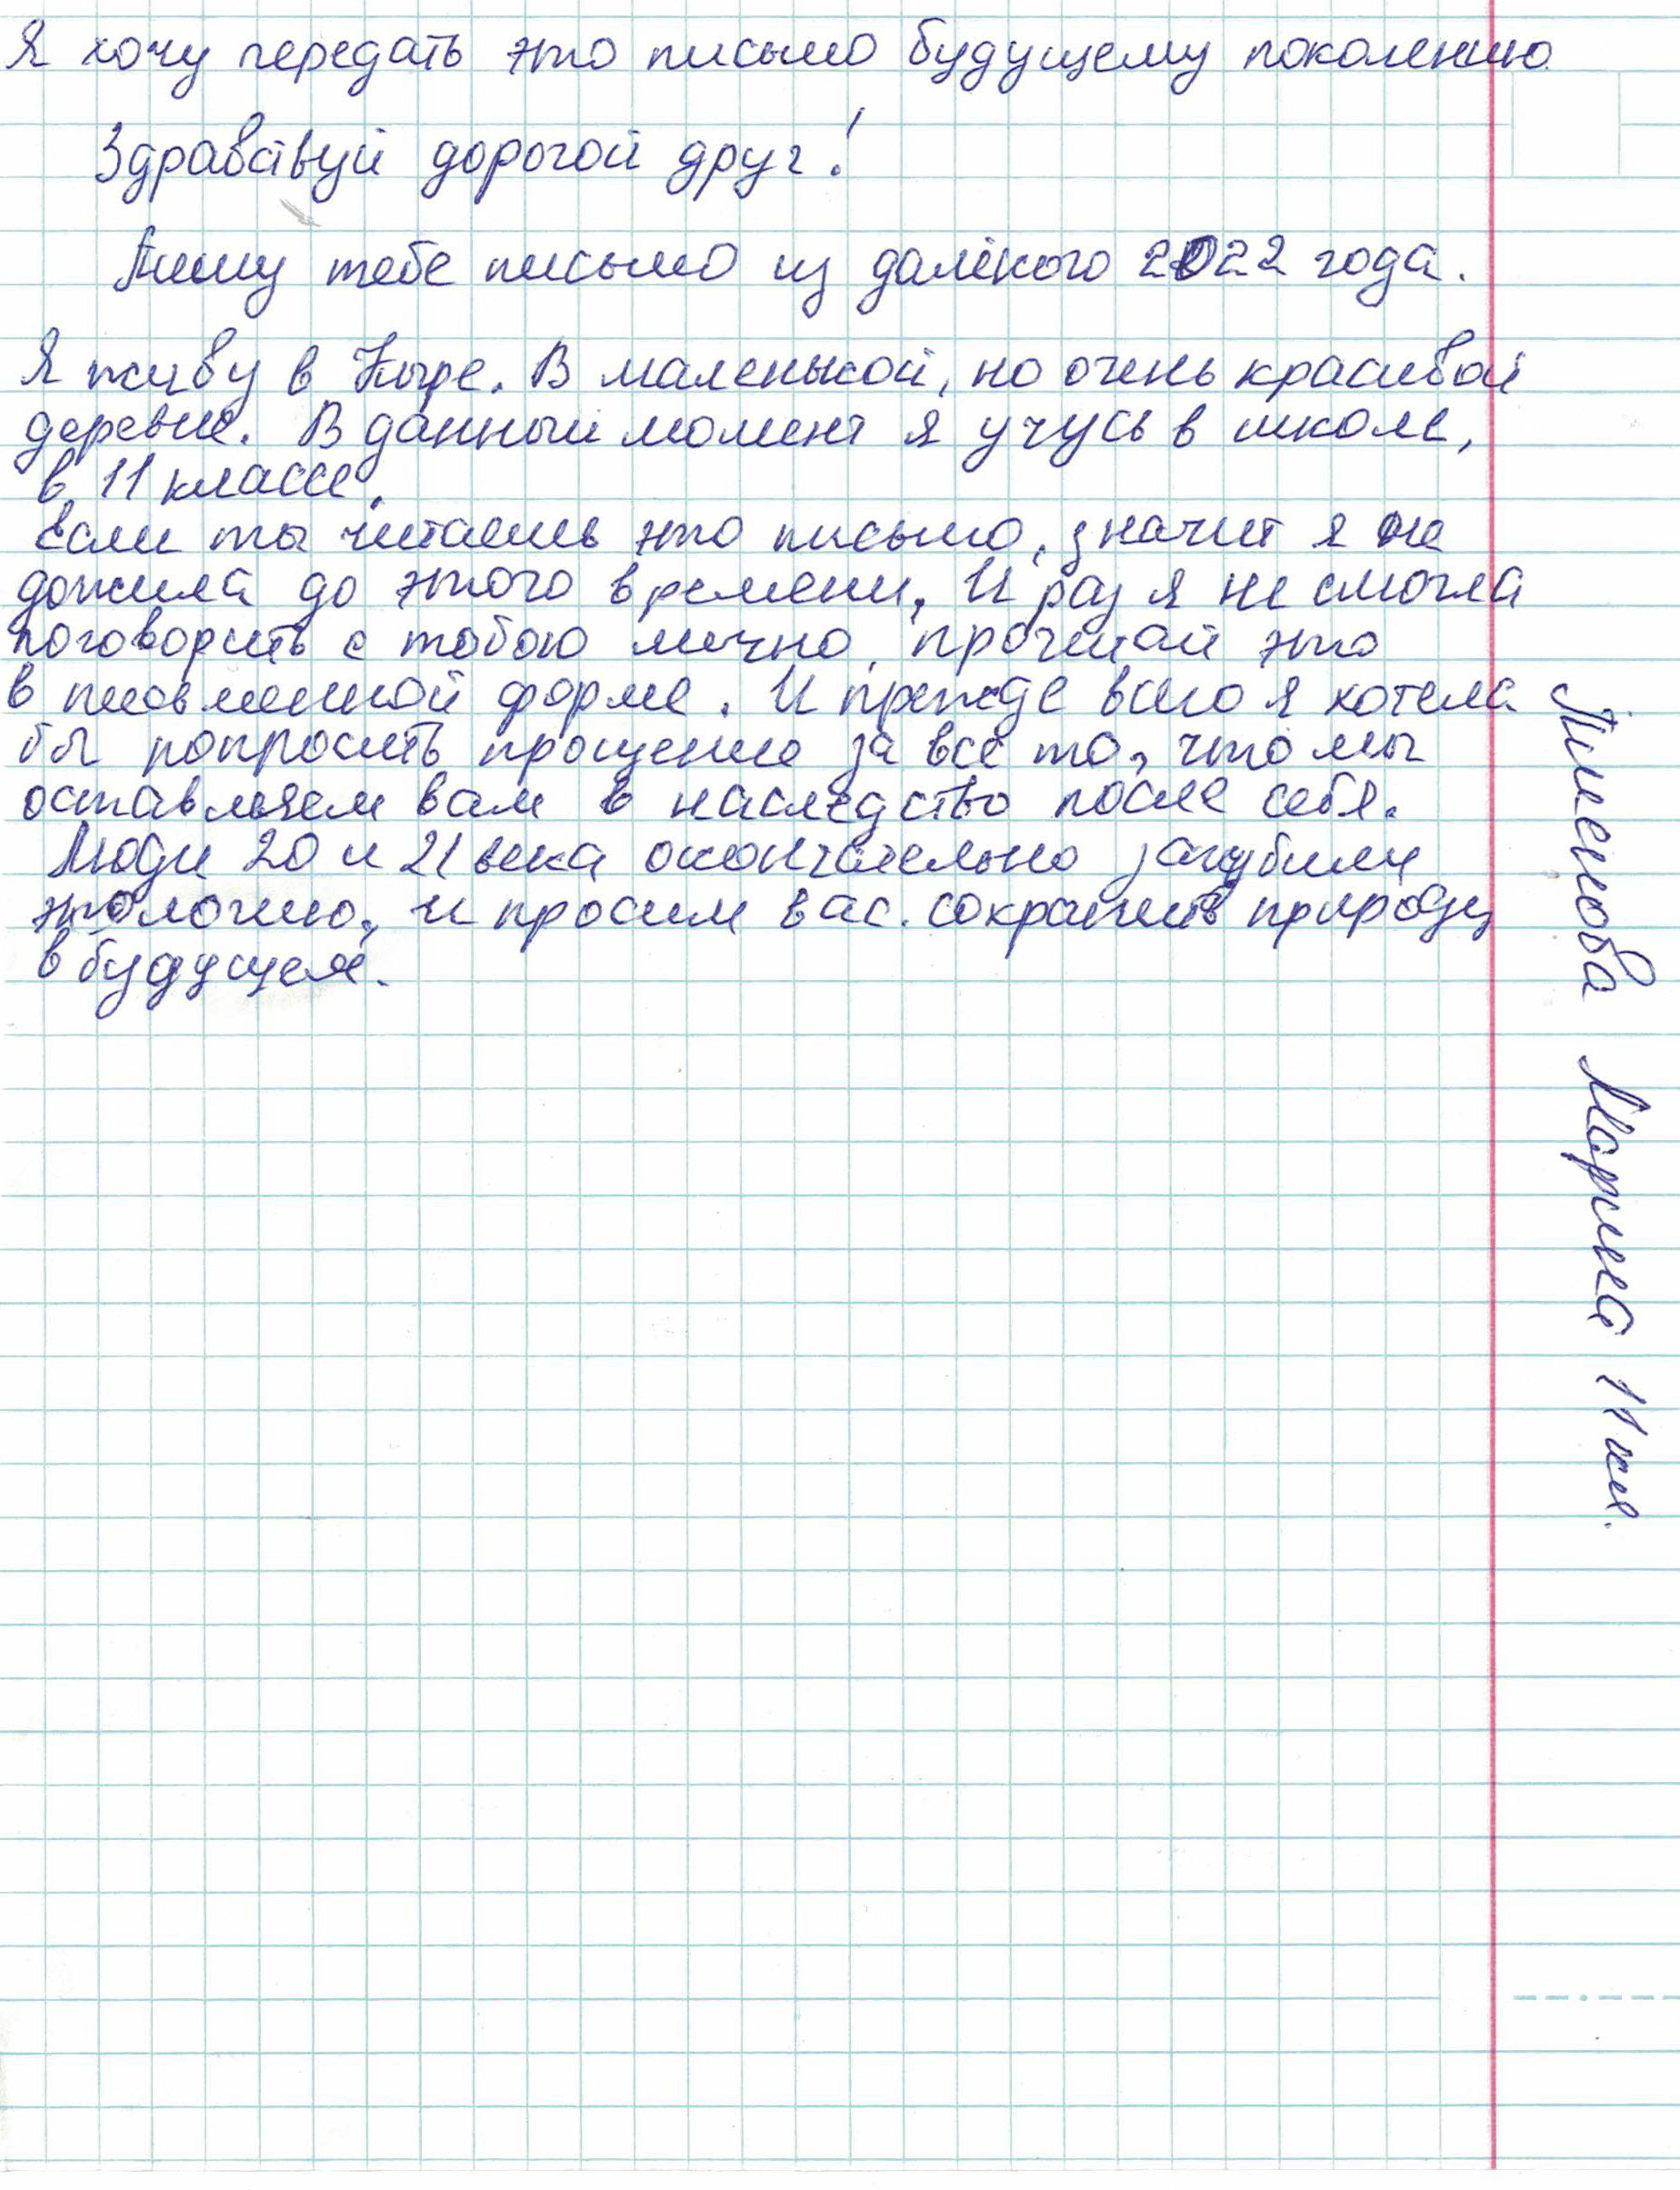 Я хочу передать это письмо будущему поколению
Здравствуй дорогой друг!
Пишу тебе письмо из далёкого 2022 года.
Я живу в Кыре. В маленькой, но очень красивой
деревне. В данный момент я учусь в школе,
в 11 классе.
Если ты читаешь это письмо, значит я не
дожила до этого времени. И раз я не смогла
поговорить с тобою лично, прочитай это
в письменной форме. И прежде всего я хотела
бы попросить прощение за всё то, что мы
оставляем вам в наследство после себя.
Люди 20 и 21 века окончательно загубили
экологию, и просим вас. сохранить природу
в будущем.
Пименова Марина 11 кл.